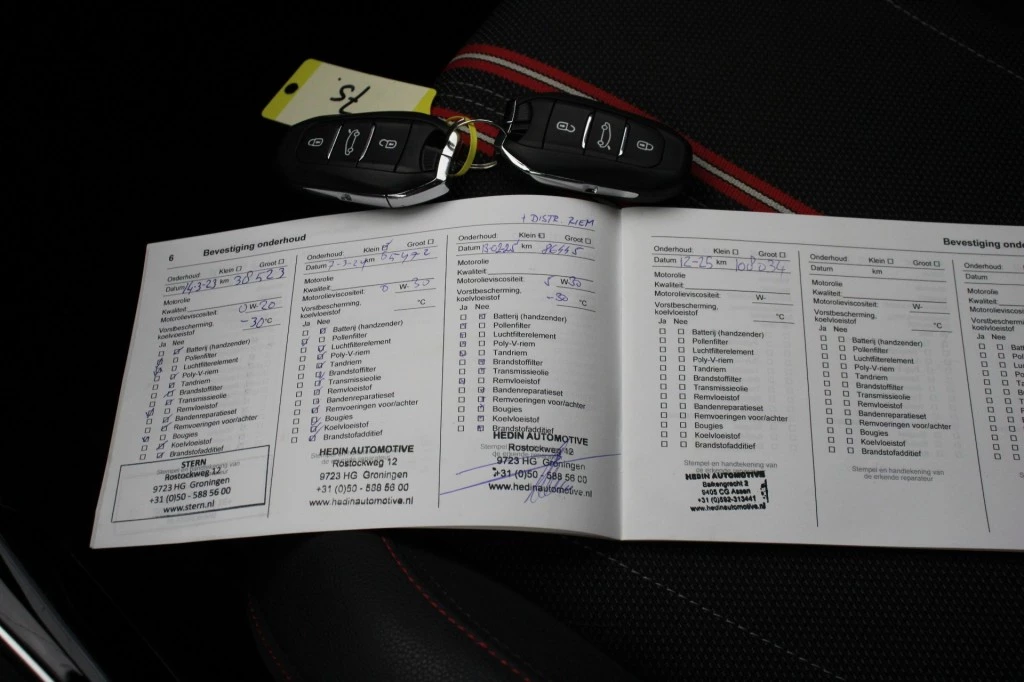 75.
+ DISTR. RIEM
6
Bevestiging onderhoud
Onderhoud: Klein ☐ Groot ☐
Datum 14-3-23 km 38523
Motorolie
Kwaliteit:
Motorolieviscositeit: 0 W-20
Vorstbescherming,
koelvloeistof -30 °C
Ja Nee
Batterij (handzender)
Pollenfilter
Luchtfilterelement
Poly-V-riem
Tandriem
Brandstoffilter
Transmissieolie
Remvloeistof
Bandenreparatieset
Remvoeringen voor/achter
Bougies
Koelvloeistof
Brandstofadditief
STERN
Rostockweg 12
9723 HG Groningen
+31 (0)50 - 588 56 00
www.stern.nl
Onderhoud: Klein ☑ Groot ☐
Datum km
Motorolie
Kwaliteit:
Motorolieviscositeit: 0 W-30
Vorstbescherming,
koelvloeistof °C
Ja Nee
Batterij (handzender)
Pollenfilter
Luchtfilterelement
Poly-V-riem
Tandriem
Brandstoffilter
Transmissieolie
Remvloeistof
Bandenreparatieset
Remvoeringen voor/achter
Bougies
Koelvloeistof
Brandstofadditief
HEDIN AUTOMOTIVE
Rostockweg 12
9723 HG Groningen
+31 (0)50 - 588 56 00
www.hedinautomotive.nl
Onderhoud: Klein ☐ Groot ☐
Datum km
Motorolie
Kwaliteit:
Motorolieviscositeit: 5 W-30
Vorstbescherming,
koelvloeistof -30 °C
Ja Nee
Batterij (handzender)
Pollenfilter
Luchtfilterelement
Poly-V-riem
Tandriem
Brandstoffilter
Transmissieolie
Remvloeistof
Bandenreparatieset
Remvoeringen voor/achter
Bougies
Koelvloeistof
Brandstofadditief
HEDIN AUTOMOTIVE
Rostockweg 12
9723 HG Groningen
+31 (0)50 - 588 56 00
www.hedinautomotive.nl
Bevestiging onde
Onderhoud: Klein ☐ Groot ☐
Datum 12-25 km 108034
Motorolie
Kwaliteit:
Motorolieviscositeit: W-
Vorstbescherming,
koelvloeistof °C
Ja Nee
Batterij (handzender)
Pollenfilter
Luchtfilterelement
Poly-V-riem
Tandriem
Brandstoffilter
Transmissieolie
Remvloeistof
Bandenreparatieset
Remvoeringen voor/achter
Bougies
Koelvloeistof
Brandstofadditief
Stempel en handtekening van
de erkende reparateur
HEDIN AUTOMOTIVE
9405 CG Assen
+31 (0)592-313441
www.hedinautomotive.nl
Onderhoud: Klein ☐ Groot ☐
Datum km
Motorolie
Kwaliteit:
Motorolieviscositeit: W-
Vorstbescherming,
koelvloeistof °C
Ja Nee
Batterij (handzender)
Pollenfilter
Luchtfilterelement
Poly-V-riem
Tandriem
Brandstoffilter
Transmissieolie
Remvloeistof
Bandenreparatieset
Remvoeringen voor/achter
Bougies
Koelvloeistof
Brandstofadditief
Stempel en handtekening van
de erkende reparateur
Onderhoud:
Datum
Motorolie
Kwaliteit:
Motorolieviscos
Vorstbescherm
koelvloeistof
Ja Nee